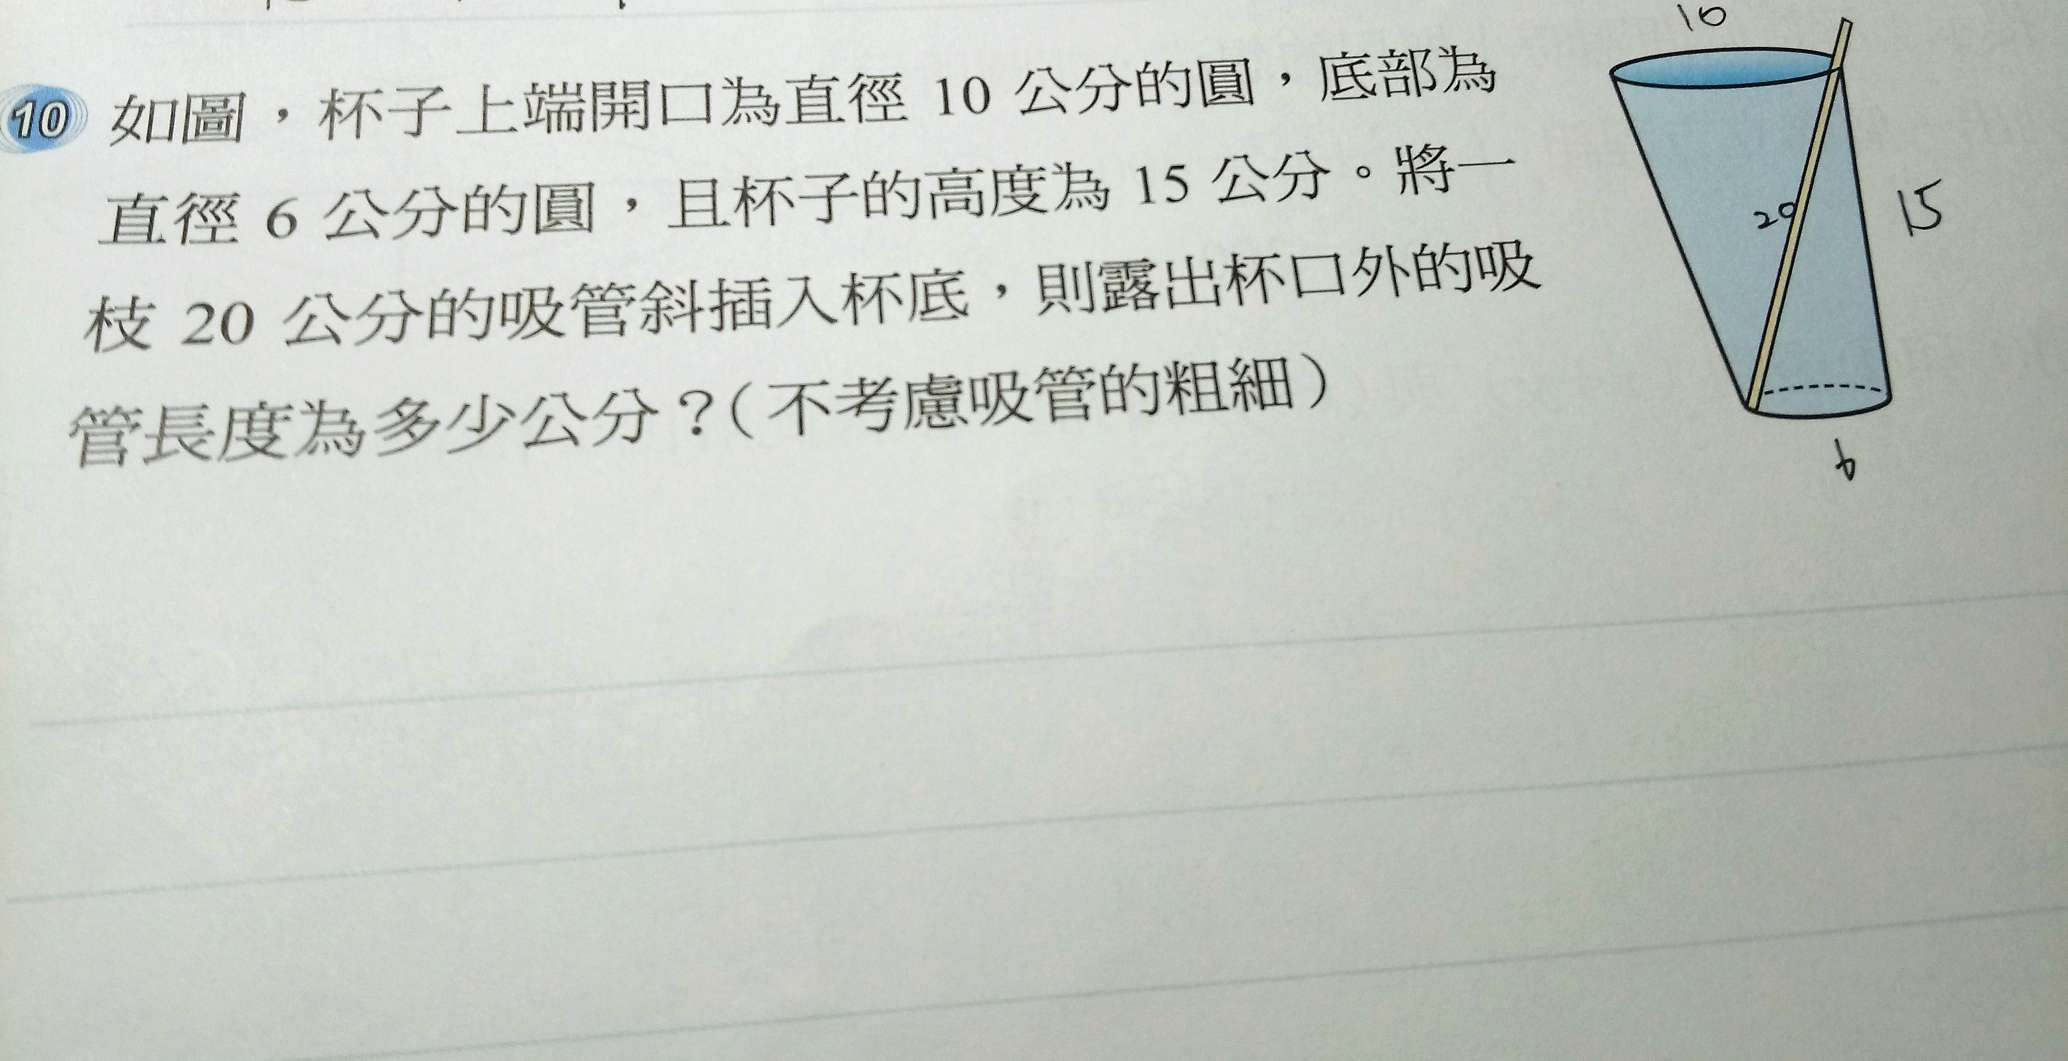 10 如圖，杯子上端開口為直徑 10 公分的圓，底部為
直徑 6 公分的圓，且杯子的高度為 15 公分。將一
枝 20 公分的吸管斜插入杯底，則露出杯口外的吸
管長度為多少公分？（不考慮吸管的粗細）
10
20
15
6